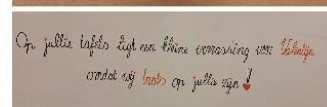 Op jullie tafels ligt een kleine verrassing van Valentijn
omdat wij trots op jullie zijn!